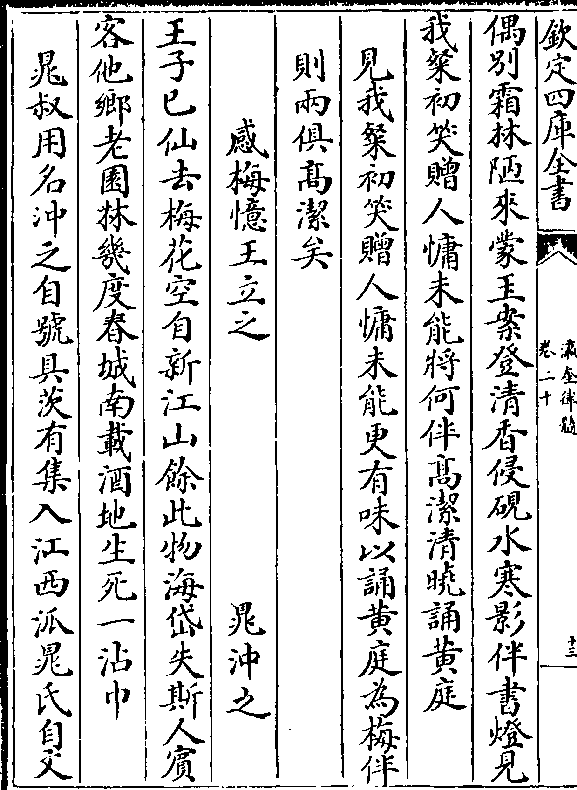 欽定四庫全書
瀛奎律髓
卷二十
十三
偶別霜林陋來蒙玉案登清香侵硯水寒影伴書燈見
我粲初笑贈人慵未能將何伴高潔清曉誦黄庭
見我粲初笑贈人慵未能更有味以誦黄庭為梅伴
則兩俱高潔矣
感梅憶王立之 晁沖之
王子已仙去梅花空自新江山餘此物海岱失斯人賓
客他鄉老園林幾度春城南載酒地生死一沾巾
晁叔用名沖之自號具茨有集入江西派晁氏自文